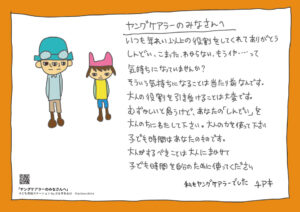 ヤングケアラーのみなさんへ
いつも年れい以上の役割をしてくれてありがとう
しんどい、こまった、わからない、もうイヤ…って
気持ちになっていませんか?
そういう気持ちになることは当たり前なんです。
大人の役割を引き受けることは大変です。
むずかしいと思うけど、あなたの「しんどい」を
大人のだれかにたして下さい。大人の力を使って下さい
子ども時間はあなたのものです。
大人がするべきことは大人にまかせて
子ども時間を自分のために使ってください
私もヤングケアラーでした チアキ
「ヤングケアラーのみなさんへ」